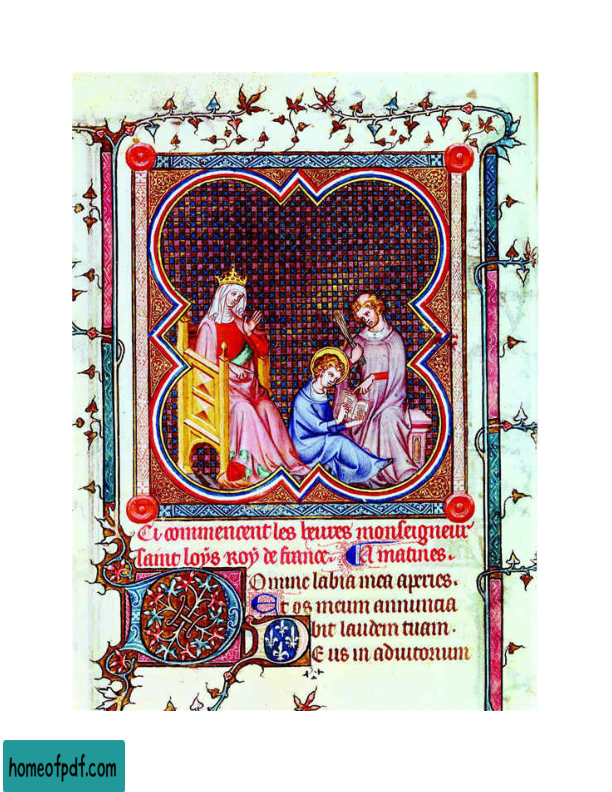 Ci commencent les heures monseigneur
saint loÿs roÿ de france. A matines.
Domine labia mea aperies.
Et os meum annuncia
bit laudem tuam.
Deus in adiutorium
homeofpdf.com